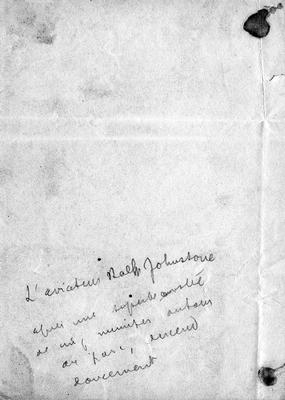 L'aviateur Ralph Johnstone
après une superbe envolée
de neuf minutes autour
du parc, descend
doucement